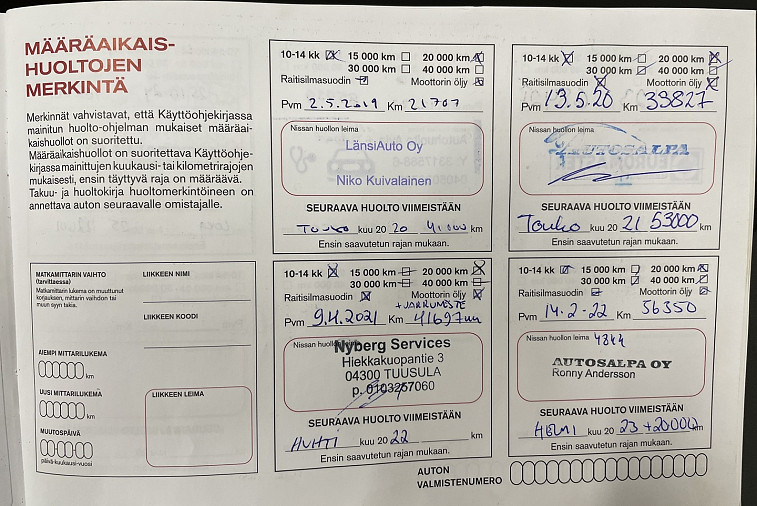 MÄÄRÄAIKAIS-
HUOLTOJEN
MERKINTÄ
Merkinnät vahvistavat, että Käyttöohjekirjassa
mainitun huolto-ohjelman mukaiset määräai-
kaishuollot on suoritettu.
Määräaikaishuollot on suoritettava Käyttöohje-
kirjassa mainittujen kuukausi- tai kilometrirajojen
mukaisesti, ensin täyttyvä raja on määräävä.
Takuu- ja huoltokirja huoltomerkintöineen on
annettava auton seuraavalle omistajalle.
MATKAMITTARIN VAIHTO
(tarvittaessa)
Matkamittarin lukema on muuttunut
korjauksen, mittarin vaihdon tai
muun syyn takia.
LIIKKEEN NIMI
LIIKKEEN KOODI
AIEMPI MITTARILUKEMA
km
UUSI MITTARILUKEMA
km
MUUTOSPÄIVÄ
päivä-kuukausi-vuosi
LIIKKEEN LEIMA
10-14 kk 15 000 km 20 000 km
30 000 km 40 000 km
Raitisilmasuodin Moottorin öljy
Pvm 2.5.2019 Km 21707
Nissan huollon leima
LänsiAuto Oy
Niko Kuivalainen
SEURAAVA HUOLTO VIIMEISTÄÄN
Touko kuu 20 20 41000 km
Ensin saavutetun rajan mukaan.
10-14 kk 15 000 km 20 000 km
30 000 km 40 000 km
Raitisilmasuodin Moottorin öljy
Pvm 13.5.20 Km 33827
Nissan huollon leima
AUTOSALPA
SEURAAVA HUOLTO VIIMEISTÄÄN
Touko kuu 20 21 53000 km
Ensin saavutetun rajan mukaan.
10-14 kk 15 000 km 20 000 km
30 000 km 40 000 km
Raitisilmasuodin Moottorin öljy
+ JARRUNESTE
Pvm 9.4.2021 Km 41697
Nissan huollon leima
Nyberg Services
Hiekkakuopantie 3
04300 TUUSULA
p. 0103257060
SEURAAVA HUOLTO VIIMEISTÄÄN
HUHTI kuu 20 22 km
Ensin saavutetun rajan mukaan.
10-14 kk 15 000 km 20 000 km
30 000 km 40 000 km
Raitisilmasuodin Moottorin öljy
Pvm 14.2-22 Km 56350
Nissan huollon leima 4844
AUTOSALPA OY
Ronny Andersson
SEURAAVA HUOLTO VIIMEISTÄÄN
HELMI kuu 20 23 +20000 km
Ensin saavutetun rajan mukaan.
AUTON
VALMISTENUMERO